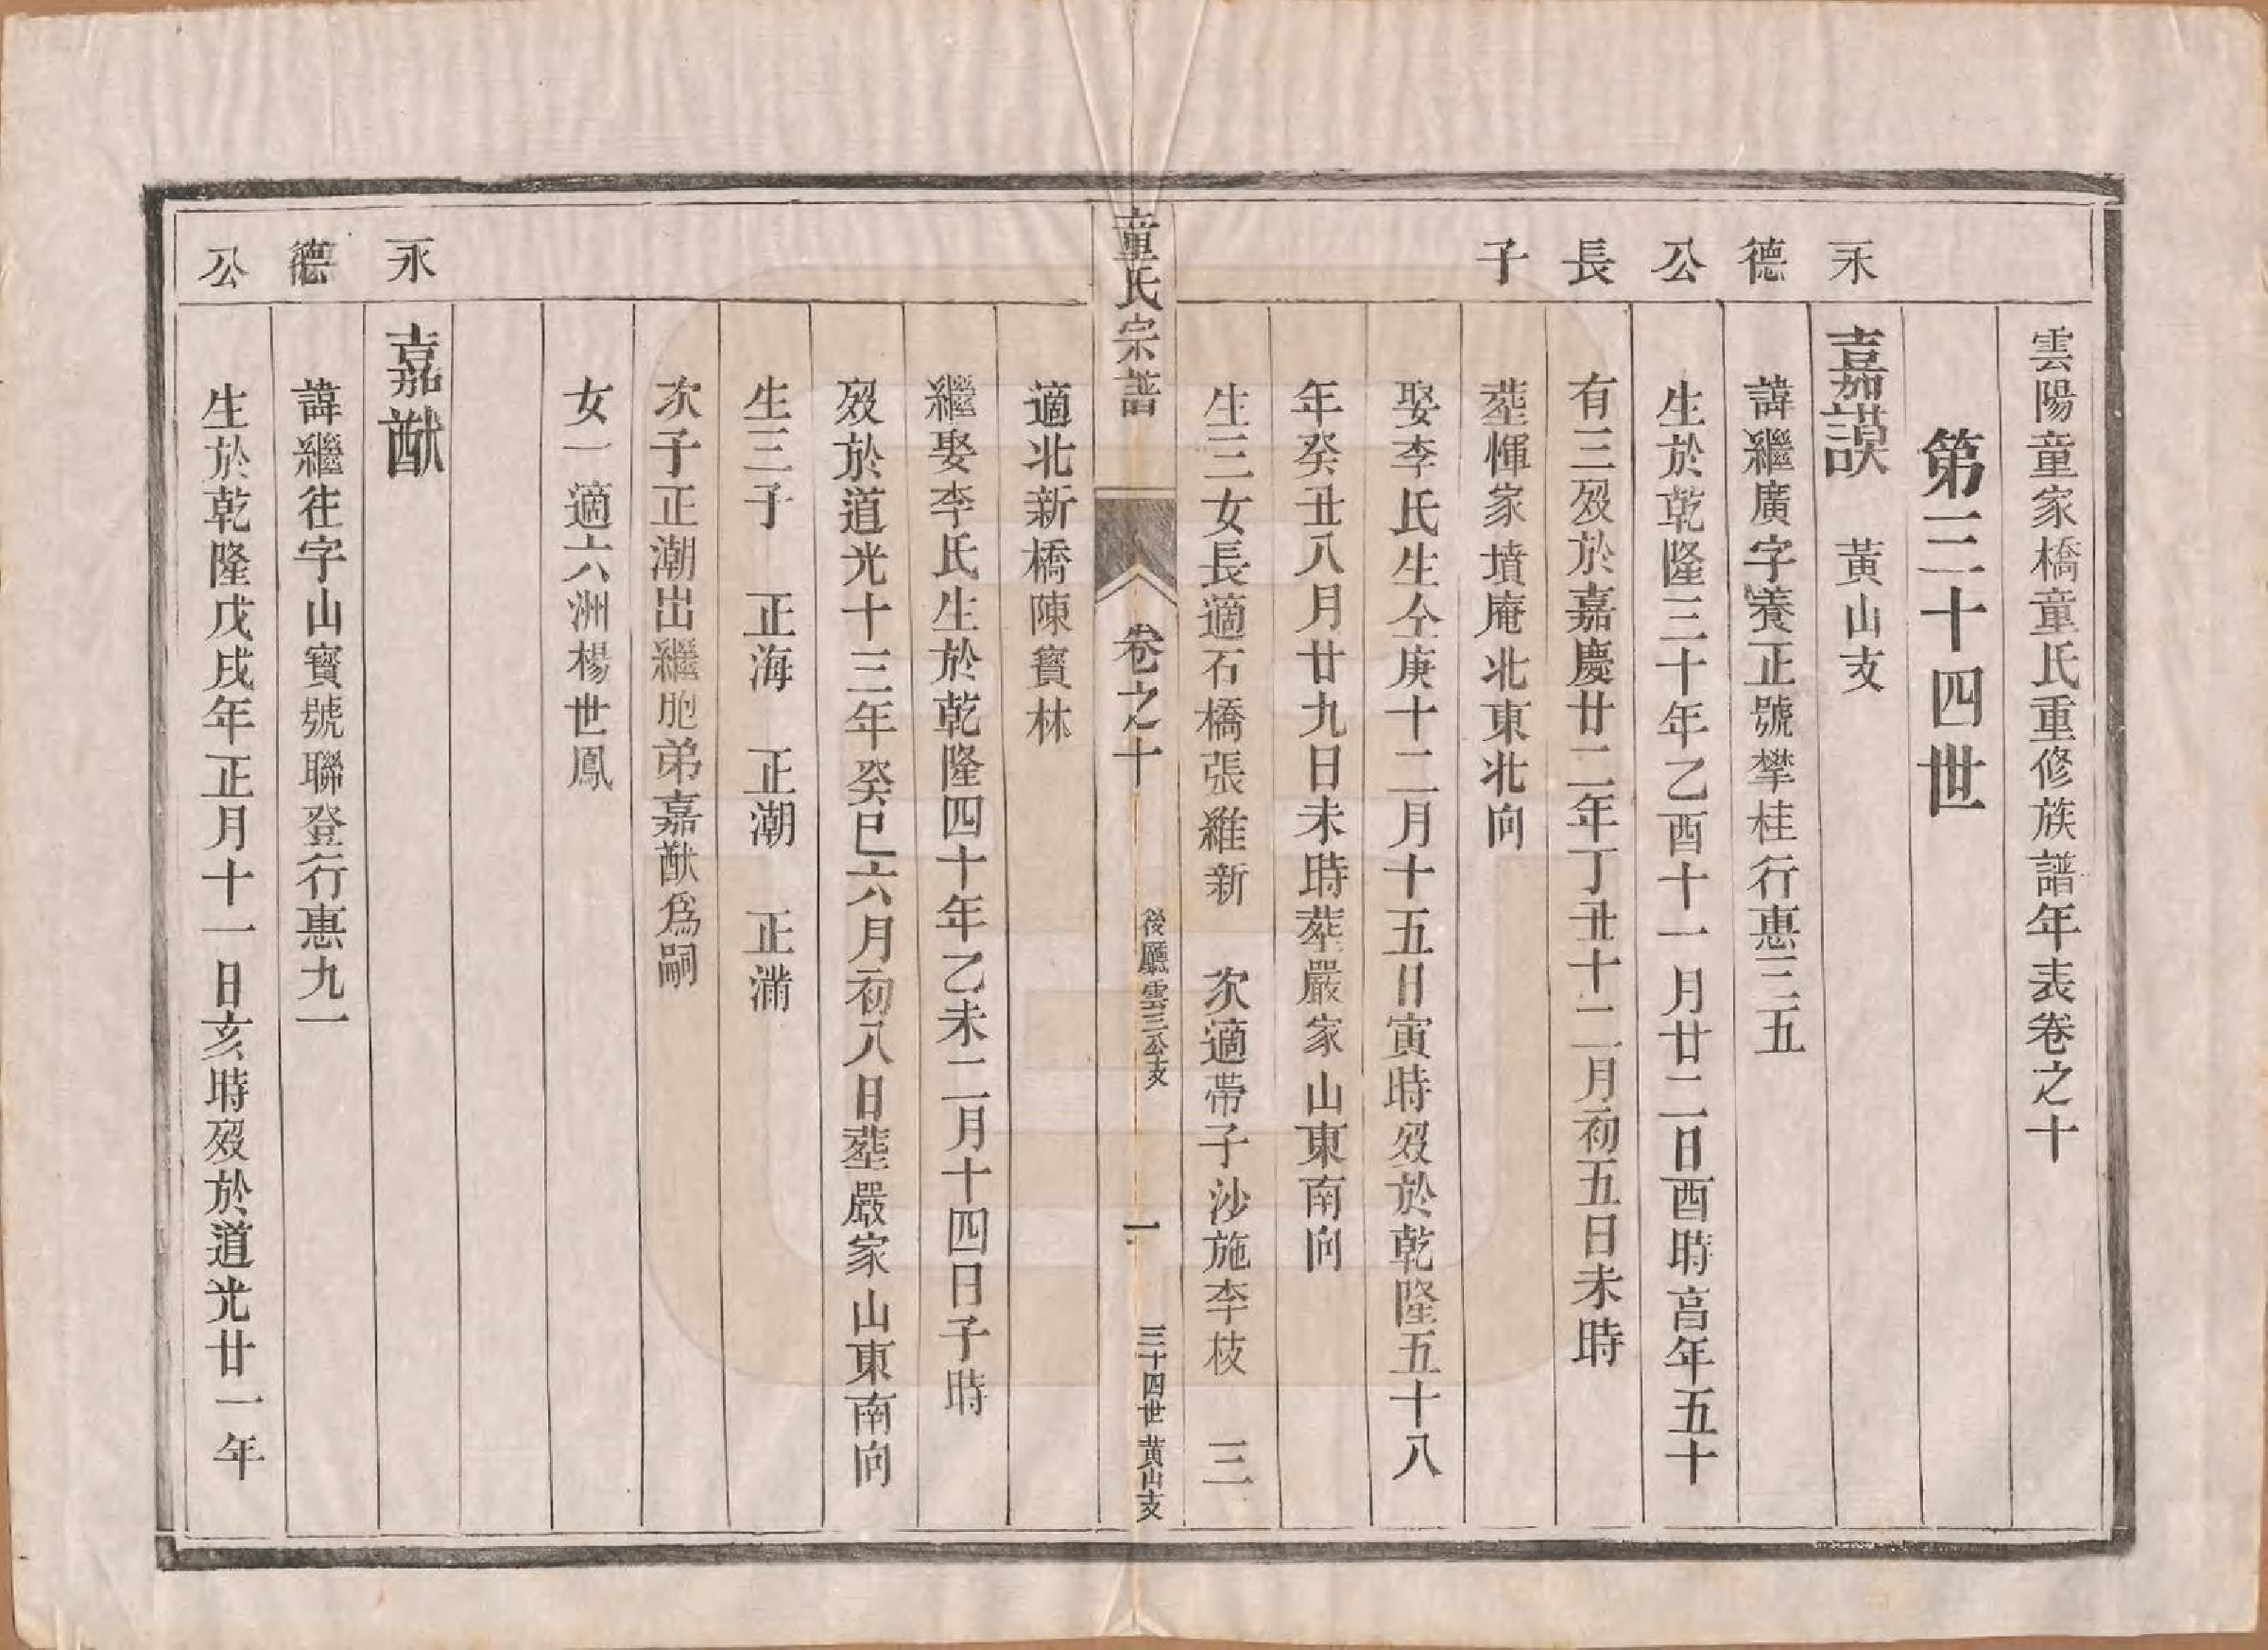 雲陽童家橋童氏重修族譜年表卷之十
第三十四世
永德公長子
嘉謨　黃山支
諱繼廣字養正號攀桂行惠三五
生於乾隆三十年乙酉十一月廿二日酉時高年五十
有三歿於嘉慶廿二年丁丑十二月初五日未時
塟惲家墳庵北東北向
娶李氏生仝庚十二月十五日寅時歿於乾隆五十八
年癸丑八月廿九日未時塟嚴家山東南向
生三女長適石橋張維新　次適帶子沙施李枝　三
童氏宗譜
卷之十
後廳雲三公支
一
三十四世黃山支
適北新橋陳寳林
繼娶李氏生於乾隆四十年乙未二月十四日子時
歿於道光十三年癸巳六月初八日塟嚴家山東南向
生三子　正海　正潮　正滿
次子正潮出繼胞弟嘉猷爲嗣
女一適六洲楊世鳳
永德公
嘉猷
諱繼往字山寳號聯登行惠九一
生於乾隆戊戌年正月十一日亥時歿於道光廿一年